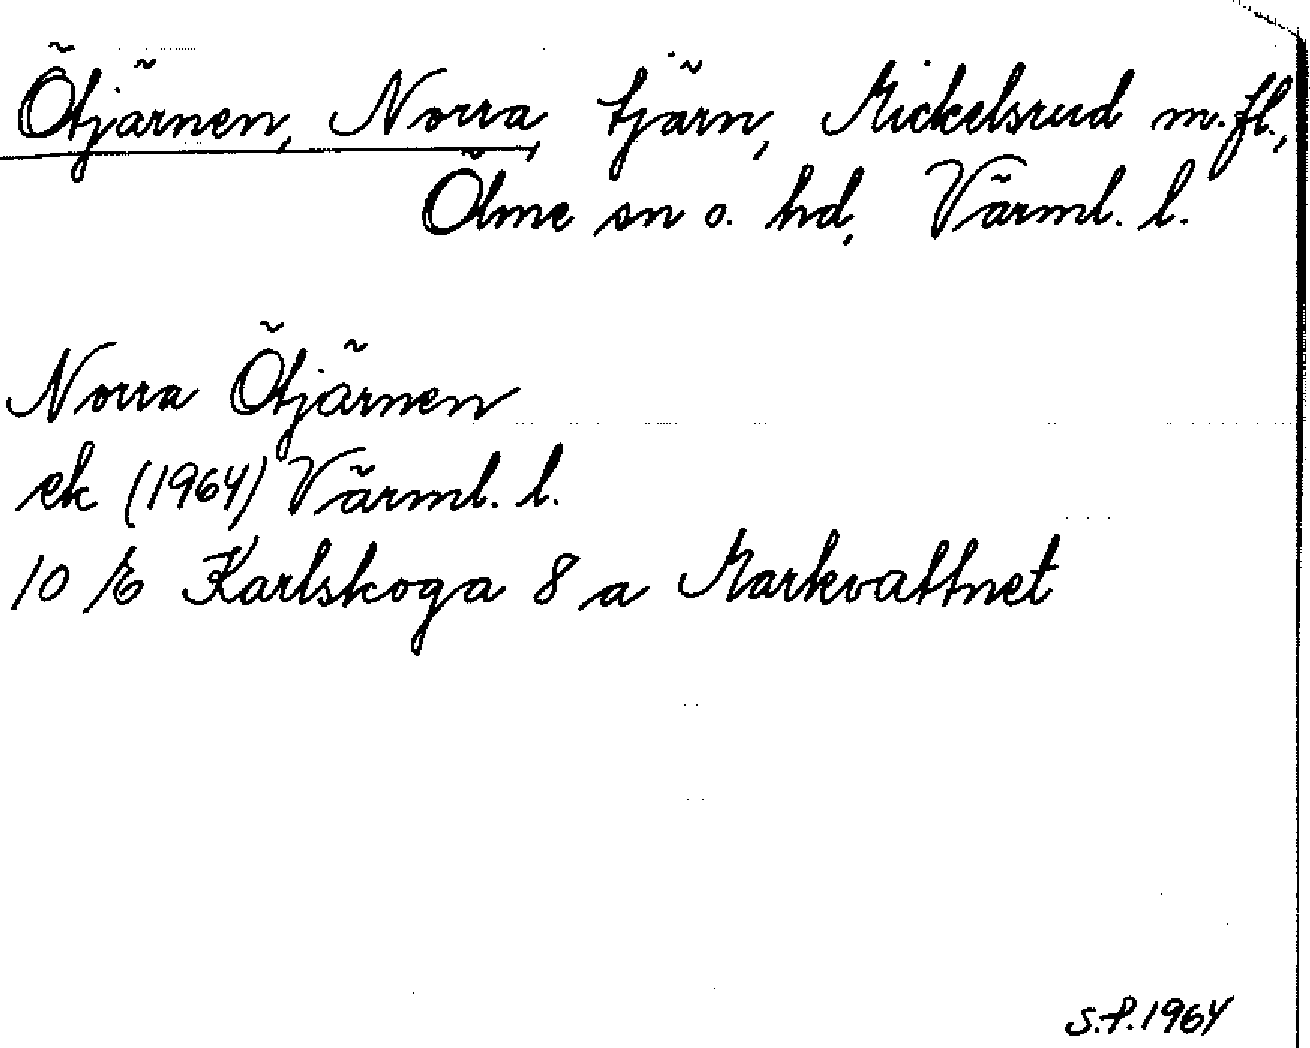 Ötjärnen, Norra, tjärn, Mickelsrud m.fl.,
Ölme sn o. hd, Värml. l.
Norra Ötjärnen
ek (1964) Värml. l.
10 E Karlskoga 8 a Markvattnet
S.P.1964